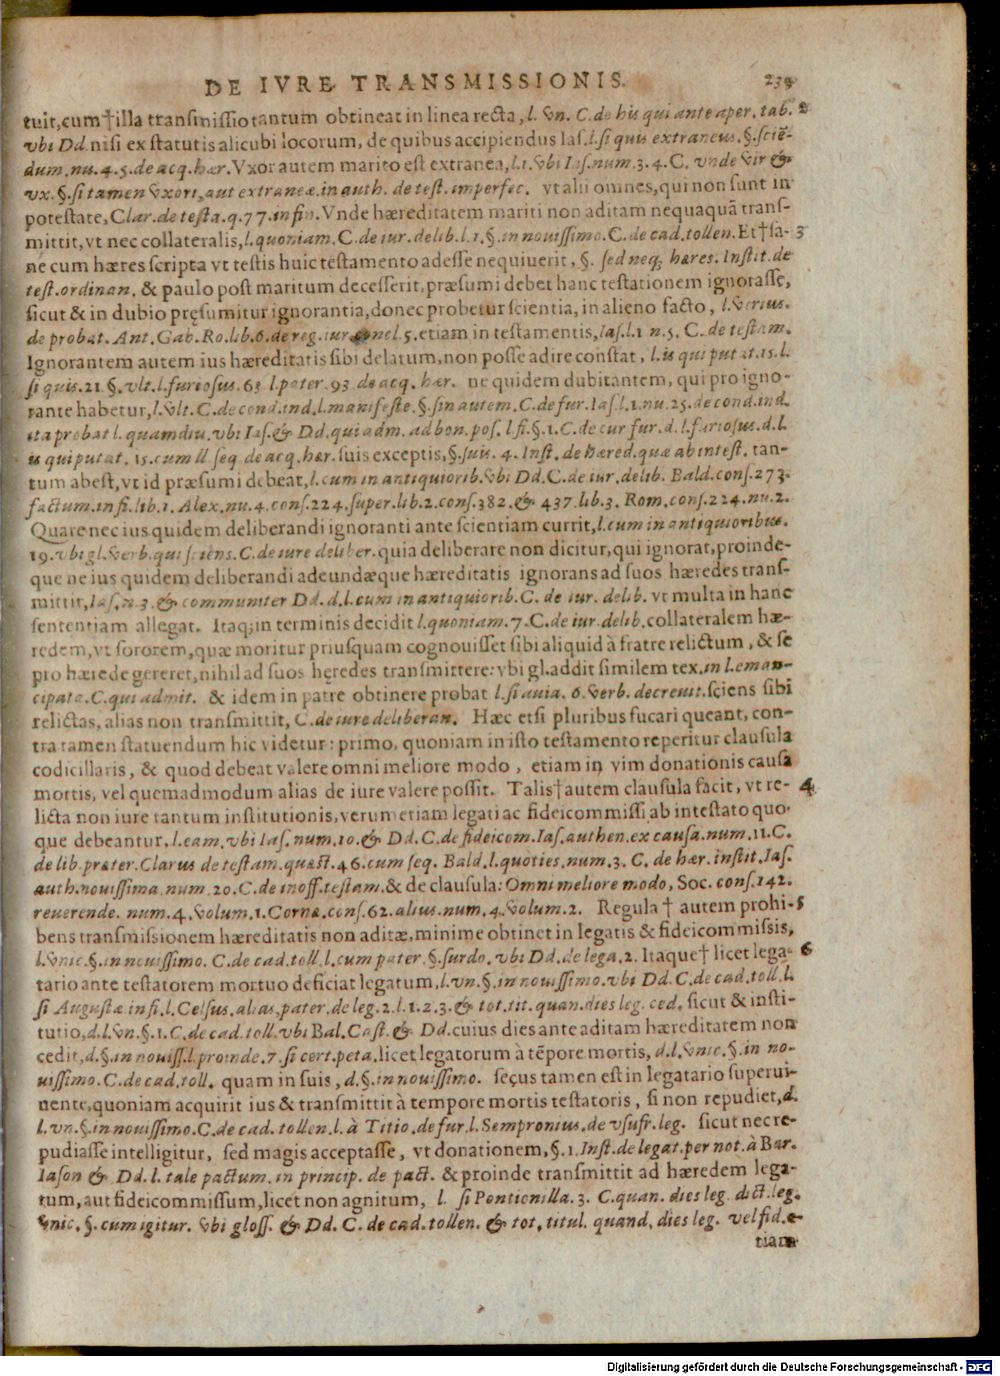 DE IVRE TRANSMISSIONIS. 239
tuit, cum†illa transmissio tantum obtineat in linea recta, l. vn. C. de his qui ante aper. tab. 2
vbi Dd. nisi ex statutis alicubi locorum, de quibus accipiendus Ias. l. si quis extraneus. §. sciē-
dum. nu. 4. 5. de acq. hær. Vxor autem marito est extranea, l. 1. vbi Ias. num. 3. 4. C. vnde vir &
vx. §. si tamen vxori, aut extraneæ. in auth. de test. imperfec. vt alii omnes, qui non sunt in
potestate, Clar. de testa. q. 77. in fin. Vnde hæreditatem mariti non aditam nequaquā trans-
mittit, vt nec collateralis, l. quoniam. C. de iur. delib. l. 1. §. in nouissimo. C. de cad. tollen. Et†sa- 3
nè cum hæres scripta vt testis huic testamento adesse nequiuerit, §. sed neq; hæres. Instit. de
test. ordinan. & paulo post maritum decesserit, præsumi debet hanc testationem ignorasse,
sicut & in dubio pręsumitur ignorantia, donec probetur scientia, in alieno facto, l. verius.
de probat. Ant. Gab. Ro. lib. 6. de reg. iur. concl. 5. etiam in testamentis, Ias. l. 1 n. 5. C. de testam.
Ignorantem autem ius hæreditatis sibi delatum, non posse adire constat, l. is qui putat. 15. l.
si quis. 21 §. vlt. l. furiosus. 63 l. pater. 93 de acq. hær. ne quidem dubitantem, qui pro igno-
rante habetur, l. vlt. C. de cond. ind. l. manifeste. §. sin autem. C. de fur. Ias. l. 1. nu. 25. de cond. ind.
ita probat l. quamdiu. vbi Ias. & Dd. qui adm. ad bon. pos. l. fi. §. 1. C. de cur fur. d. l. furiosus. d. l.
is qui putat. 15. cum ll seq. de acq. hær. suis exceptis, §. suis. 4. Inst. de hæred. quæ ab intest. tan-
tum abest, vt id præsumi debeat, l. cum in antiquiorib. vbi Dd. C. de iur. delib. Bald. cons. 273.
factum. in fi. lib. 1. Alex. nu. 4. cons. 224. super. lib. 2. cons. 382. & 437. lib. 3. Rom. cons. 224. nu. 2.
Quare nec ius quidem deliberandi ignoranti ante scientiam currit, l. cum in antiquioribus.
19. vbi gl. verb. qui sciens. C. de iure deliber. quia deliberare non dicitur, qui ignorat, proinde-
que ne ius quidem deliberandi adeundæque hæreditatis ignorans ad suos hæredes trans-
mittit, Ias. n. 3. & communiter Dd. d. l. cum in antiquiorib. C. de iur. delib. vt multa in hanc
sententiam allegat. Itaq; in terminis decidit l. quoniam. 7. C. de iur. delib. collateralem hæ-
redem, vt sororem, quæ moritur priusquam cognouisset sibi aliquid à fratre relictum, & se
pro hærede gereret, nihil ad suos hęredes transmittere: vbi gl. addit similem tex. in l. eman-
cipata. C. qui admit. & idem in patre obtinere probat l. si auia. 6. verb. decreuit. sciens sibi
relictas, alias non transmittit, C. de iure deliberan. Hæc etsi pluribus fucari queant, con-
tra tamen statuendum hic videtur: primo, quoniam in isto testamento reperitur clausula
codicillaris, & quod debeat valere omni meliore modo, etiam in vim donationis causa
mortis, vel quemadmodum alias de iure valere possit. Talis†autem clausula facit, vt re- 4
licta non iure tantum institutionis, verum etiam legati ac fideicommissi ab intestato quo-
que debeantur, l. eam. vbi Ias. num. 10. & Dd. C. de fideicom. Ias. authen. ex causa. num. 11. C.
de lib. præter. Clarus de testam. quæst. 46. cum seq. Bald. l. quoties. num. 3. C. de hær. instit. Ias.
auth. nouissima. num. 20. C. de inoff. testam. & de clausula: Omni meliore modo, Soc. cons. 142.
reuerende. num. 4. volum. 1. Cornæ. cons. 62. alius. num. 4. volum. 2. Regula † autem prohi- 5
bens transmissionem hæreditatis non aditæ, minime obtinet in legatis & fideicommissis,
l. vnic. §. in nouissimo. C. de cad. toll. l. cum pater. §. surdo. vbi Dd. de lega. 2. Itaque† licet lega- 6
tario ante testatorem mortuo deficiat legatum, l. vn. §. in nouissimo. vbi Dd. C. de cad. toll. l.
si Augustæ in fi. l. Celsus, alias, pater. de leg. 2. l. 1. 2. 3. & tot. tit. quan. dies leg. ced. sicut & insti-
tutio, d. l. vn. §. 1. C. de cad. toll. vbi Bal. Cast. & Dd. cuius dies ante aditam hæreditatem non
cedit, d. §. in nouiss. l. proinde. 7. si cert. peta. licet legatorum à tēpore mortis, d. l. vnic. §. in no-
uissimo. C. de cad. toll. quam in suis, d. §. in nouissimo. secus tamen est in legatario superui-
uente, quoniam acquirit ius & transmittit à tempore mortis testatoris, si non repudiet, d.
l. vn. §. in nouissimo. C. de cad. tollen. l. à Titio. de fur. l. Sempronius. de vsufr. leg. sicut nec re-
pudiasse intelligitur, sed magis acceptasse, vt donationem, §. 1. Inst. de legat. per not. à Bar.
Iason & Dd. l. tale pactum. in princip. de pact. & proinde transmittit ad hæredem lega-
tum, aut fideicommissum, licet non agnitum, l. si Pontionilla. 3. C. quan. dies leg. dict. leg.
vnic. §. cum igitur. vbi gloss. & Dd. C. de cad. tollen. & tot. titul. quand. dies leg. vel fid. e-
tiam
Digitalisierung gefördert durch die Deutsche Forschungsgemeinschaft - DFG